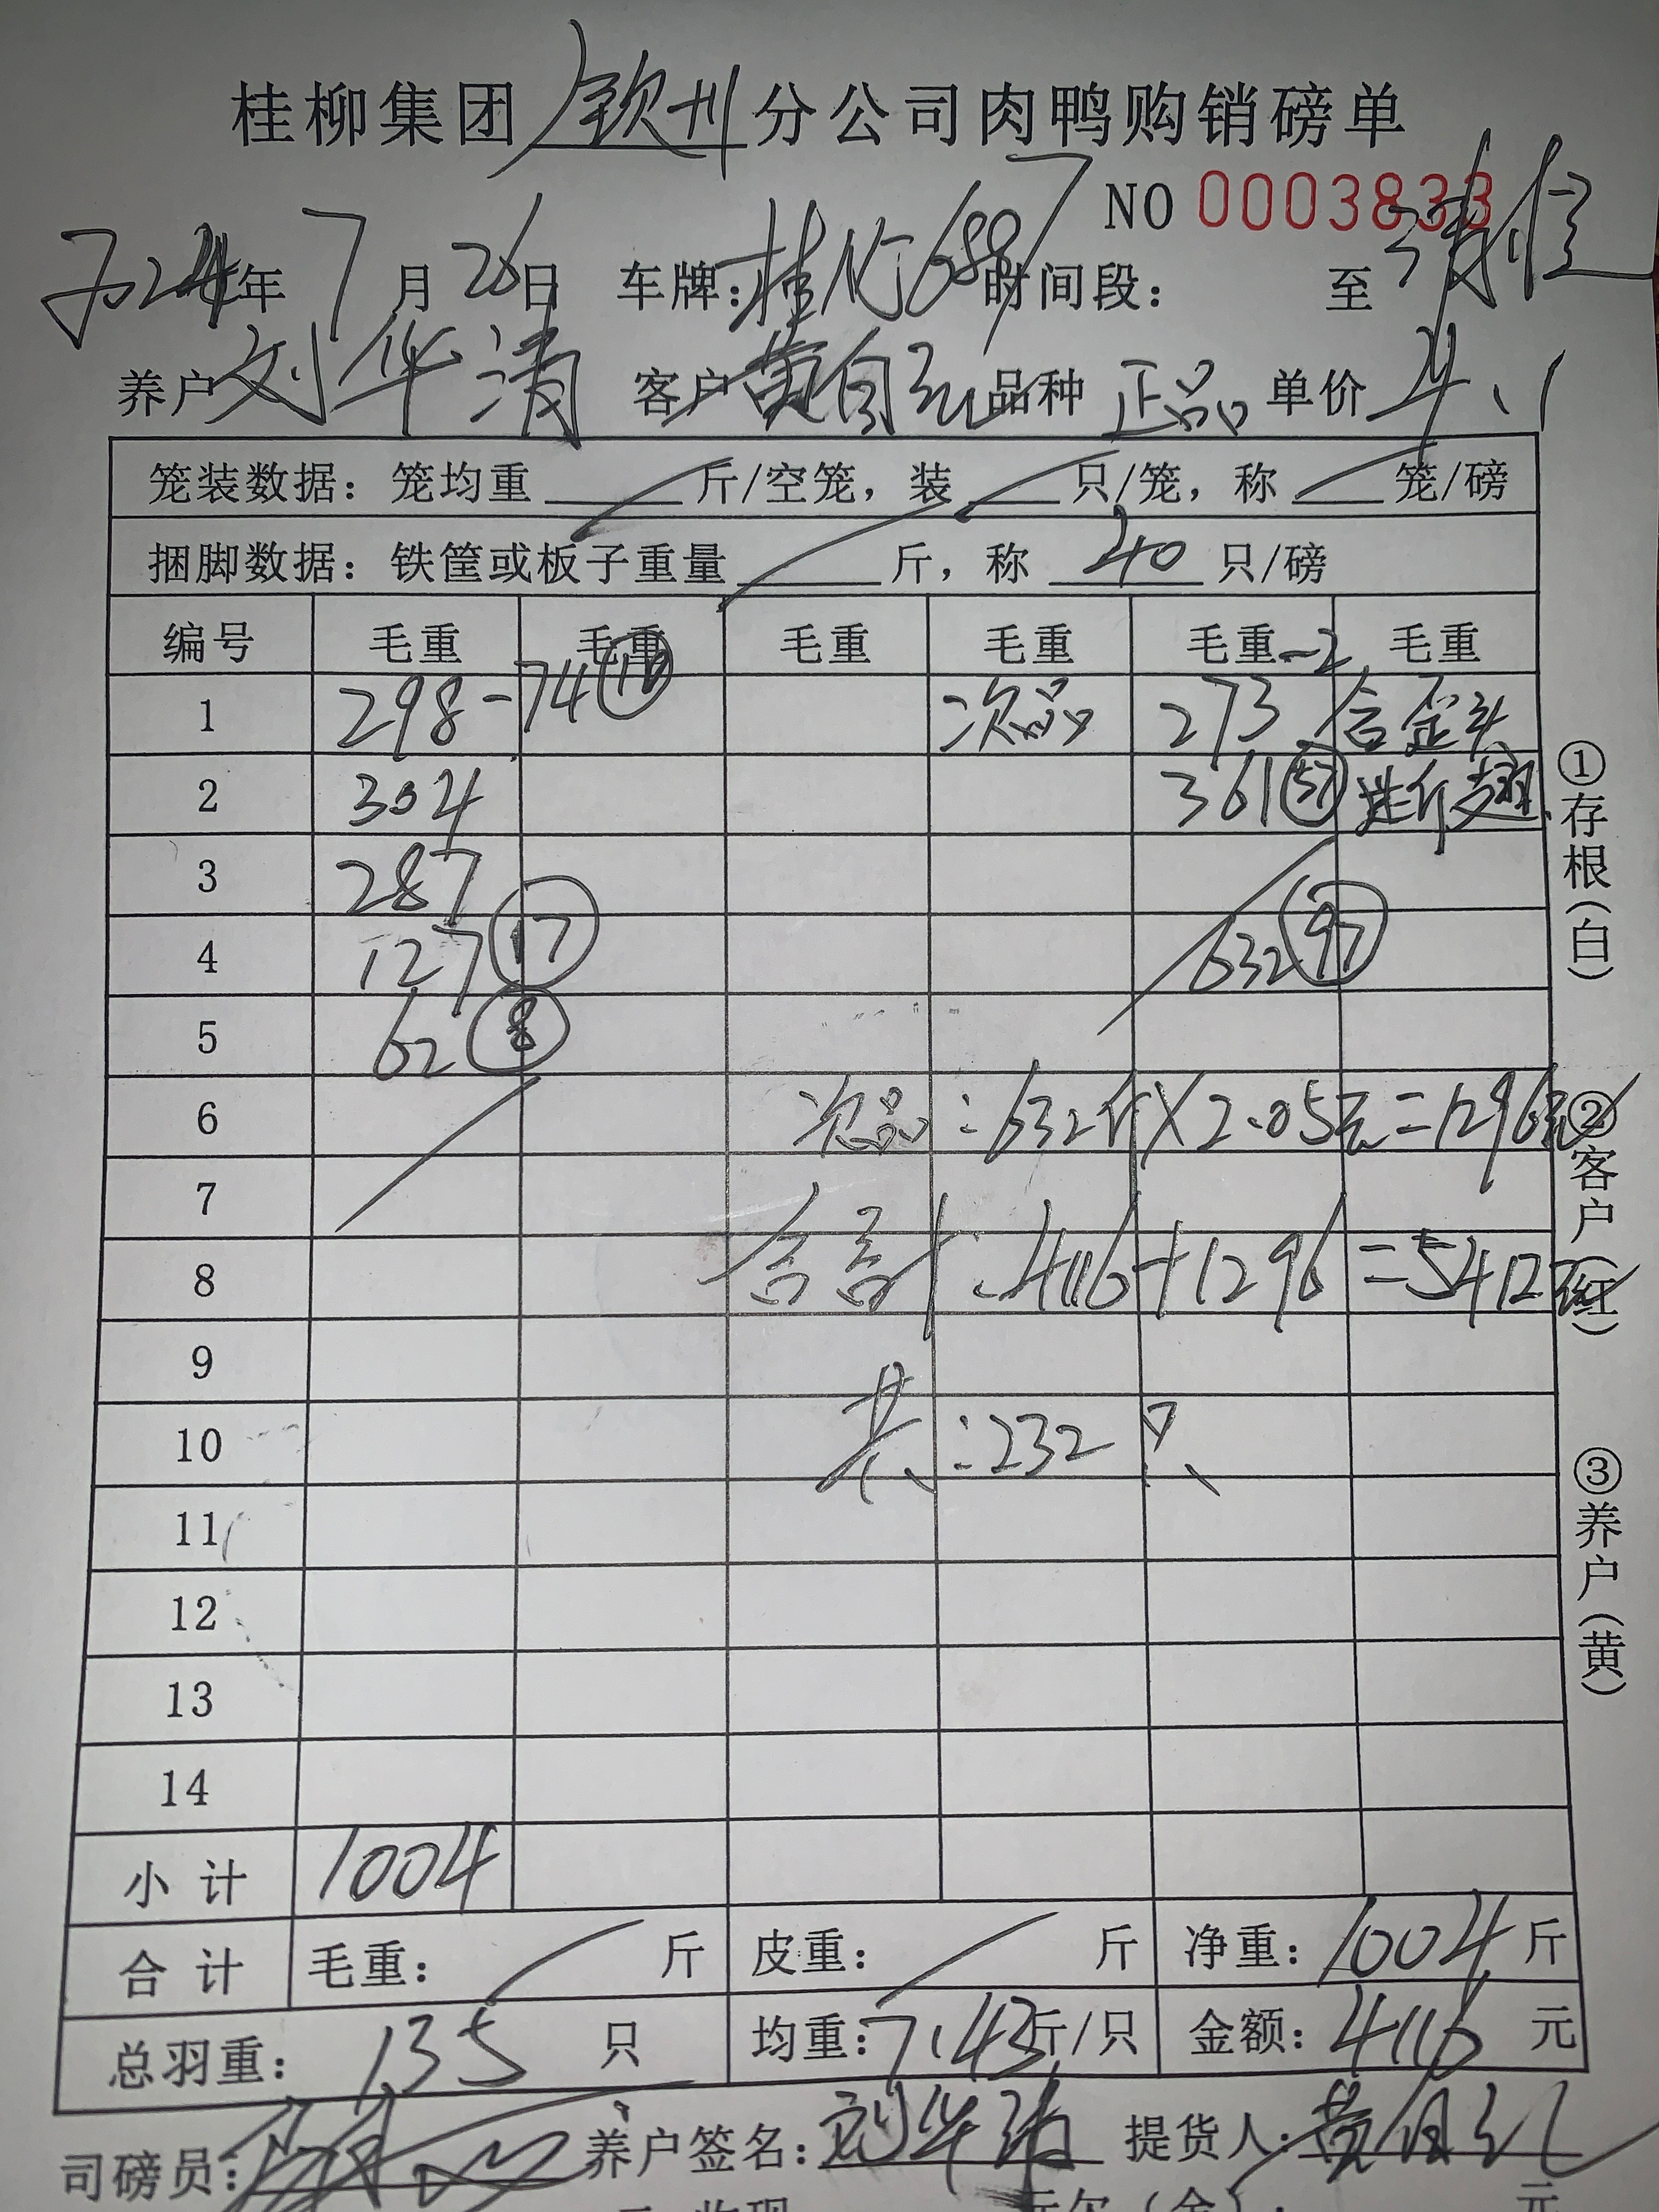 桂柳集团钦州分公司肉鸭购销磅单
NO 0003833
2024年7月26日 车牌:桂N 6887 时间段: 至
养户 刘华清 客户 黄自 品种 正品 单价 4.1
笼装数据:笼均重 斤/空笼,装 只/笼,称 笼/磅
捆脚数据:铁筐或板子重量 斤,称 40 只/磅
编号 毛重 毛重 毛重 毛重 毛重-2 毛重
1 298-74 10 次品 273 含歪头
2 304 361 57 翅
3 287
4 127 17 632 97
5 62 8
6 次品:632斤X2.05元=1296元
7
8 合计:4116+1296=5412元
9
10 共:232只
11
12
13
14
小计 1004
合计 毛重: 斤 皮重: 斤 净重:1004斤
总羽重:135 只 均重:7.43斤/只 金额:4116 元
司磅员: 养户签名:刘华清 提货人:黄自
①存根(白)
②客户(红)
③养户(黄)